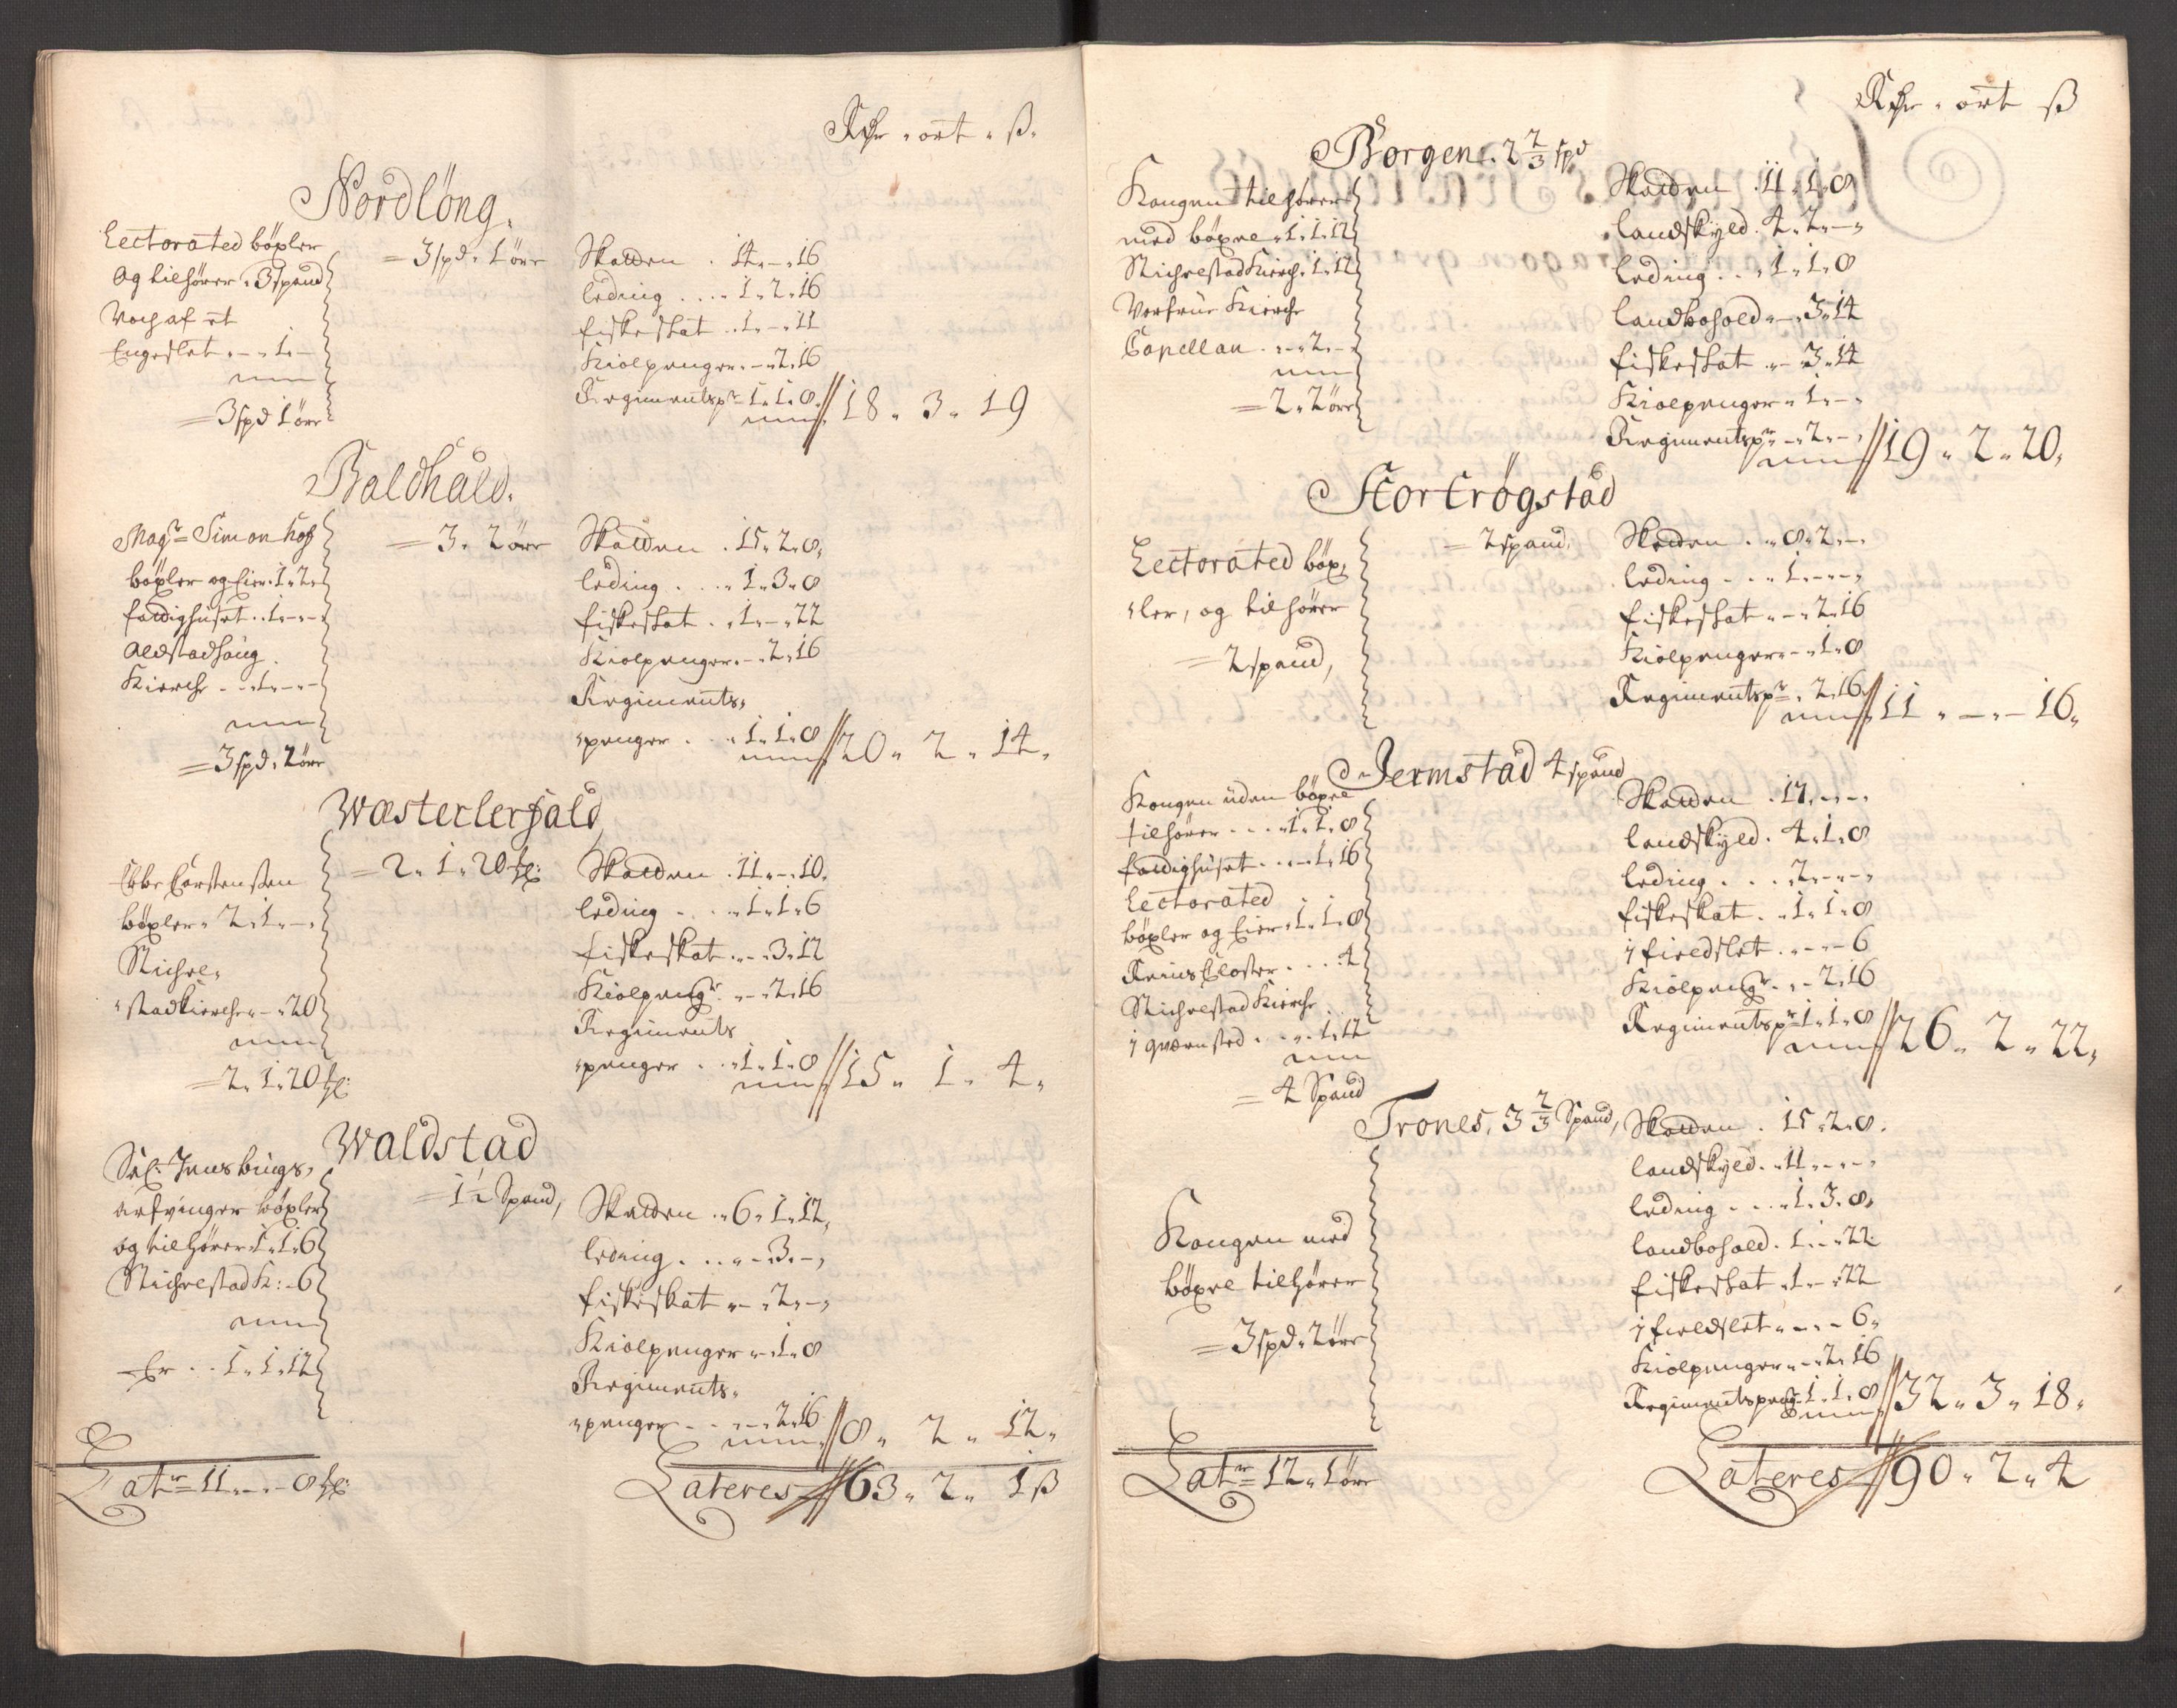 Rdr. ort. ß.
Nordlöng.
Lectoratet böxler
og tilhörer. 3 spand
Noch af et
Engeslet. - . 1. -
= 3 spd 1 öre
= 3 spd. 1 öre
Skatten . 14. - . 16
leding . . . . 1. 2. 16
fiskeskat . . 1. - . 11
Kiolpenger. - . 2. 16
Regimentspr = 1. 1. 8. // 18. 3. 19
Baldhald.
Magr = Simon Hof
böxler og Eier. 1. 2.
fattighuset . . 1. - . -
Aldstadhoug
Kierche - . . 1. - . -
= 3 spd. 2 öre
= 3. 2 öre
Skatten . 15. 2. 8.
leding . . . . 1. 3. 8
fiskeskat . . 1. - . 22
Kiolpenger. - . 2. 16
Regiments,
penger . . . 1. 1. 8 // 20. 2. 14.
Wæsterlerfald
Ebbe Carstensen
böxler. 2. 1. - .
Stichel,
stadkierche - . 20
= 2. 1. 20 sk:
= 2. 1. 20 sk:
Skatten . 11. - . 10.
leding . . . . 1. 1. 6
fiskeskat . - . 3. 12
Kiolpengr. . - . 2. 16
Regiments
penger . . . 1. 1. 8 // 15. 1. 4.
Waldstad
Sal: Jens bings,
arfvinger böxler
og tilhörer. 1. 1. 6
Stichelstad K: - 6
Er . . 1. 1. 12
= 1½ Spand,
Skatten . . 6. 1. 12,
leding . . . . - . 3. - ,
fiskeskat . - . 2. - ,
Kiolpenger . - . 1. 8
Regiments,
penger - . . . - . 2. 16 // 8. 2. 12.
Latr = 11. - . - 8 sk:
Lateres // 63. 2. 1 ß
Rdr. ort ß
Borgen. 2 2/3 spd
Kongen tilhörer
med böxel. 1. 1. 12
Stichelstad Kirch. 1. 12
Vorfrue Kierche
Capellan . . - . 2. -
= 2. 2 öre
Skatten . 11. 1. 8
landskyld. 4. 2. - ,
leding . . . 1. 1. 8
landbohold. - . 3. 14
fiskeskat . - 3. 14
Kiolpenger . 1. - .
Regimentspr. - . 2. - , // 19. 2. 20.
Stortrögstad
Lectoratet böx,
ler, og tilhörer
= 2 spand,
= 2 spand,
Skatten . . 8. 2. - .
leding . . . . 1. - . - ,
fiskeskat . - . 2. 16
Kiolpenger. - . 1. 8
Regimentspr = . 2. 16 // 11. - . - 16.
Jermstad 4 spand
Kongen uden böxel
tilhörer . . . . 1. 1. 8
fattighuset . . . - 1. 16
Lectoratet
böxler og Eier. 1. 1. 8
Reins Closter . . . 4
Stichelstad Kierche
j qværnsted . . . - . 1. 12
= 4 Spand
Skatten . 17. - . - .
landskyld. 4. 1. 8
leding . . . . 2. - . - ,
fiskeskat . . 1. 1. 8
j fieldslet . . - . - 6
Kiolpengr. . - 2. 16
Regimentspr 1. 1. 8 // 26. 2. 22,
Trones, 3 2/3 Spand,
Kongen med
böxel tilhörer
= 3 spd. 2 öre
Skatten . 15. 2. 8.
landskyld . . 11. - . - ,
leding . . . . 1. 3. 8.
landbohold. 1. - . 22.
fiskeskat . 1. - . 22
j fieldslet . - . - 6.
Kiolpenger . - . 2. 16
Regimentspeng. 1. 1. 8 // 32. 3. 18.
Latr = 12. 1 öre
Lateres // 90. 2. 4